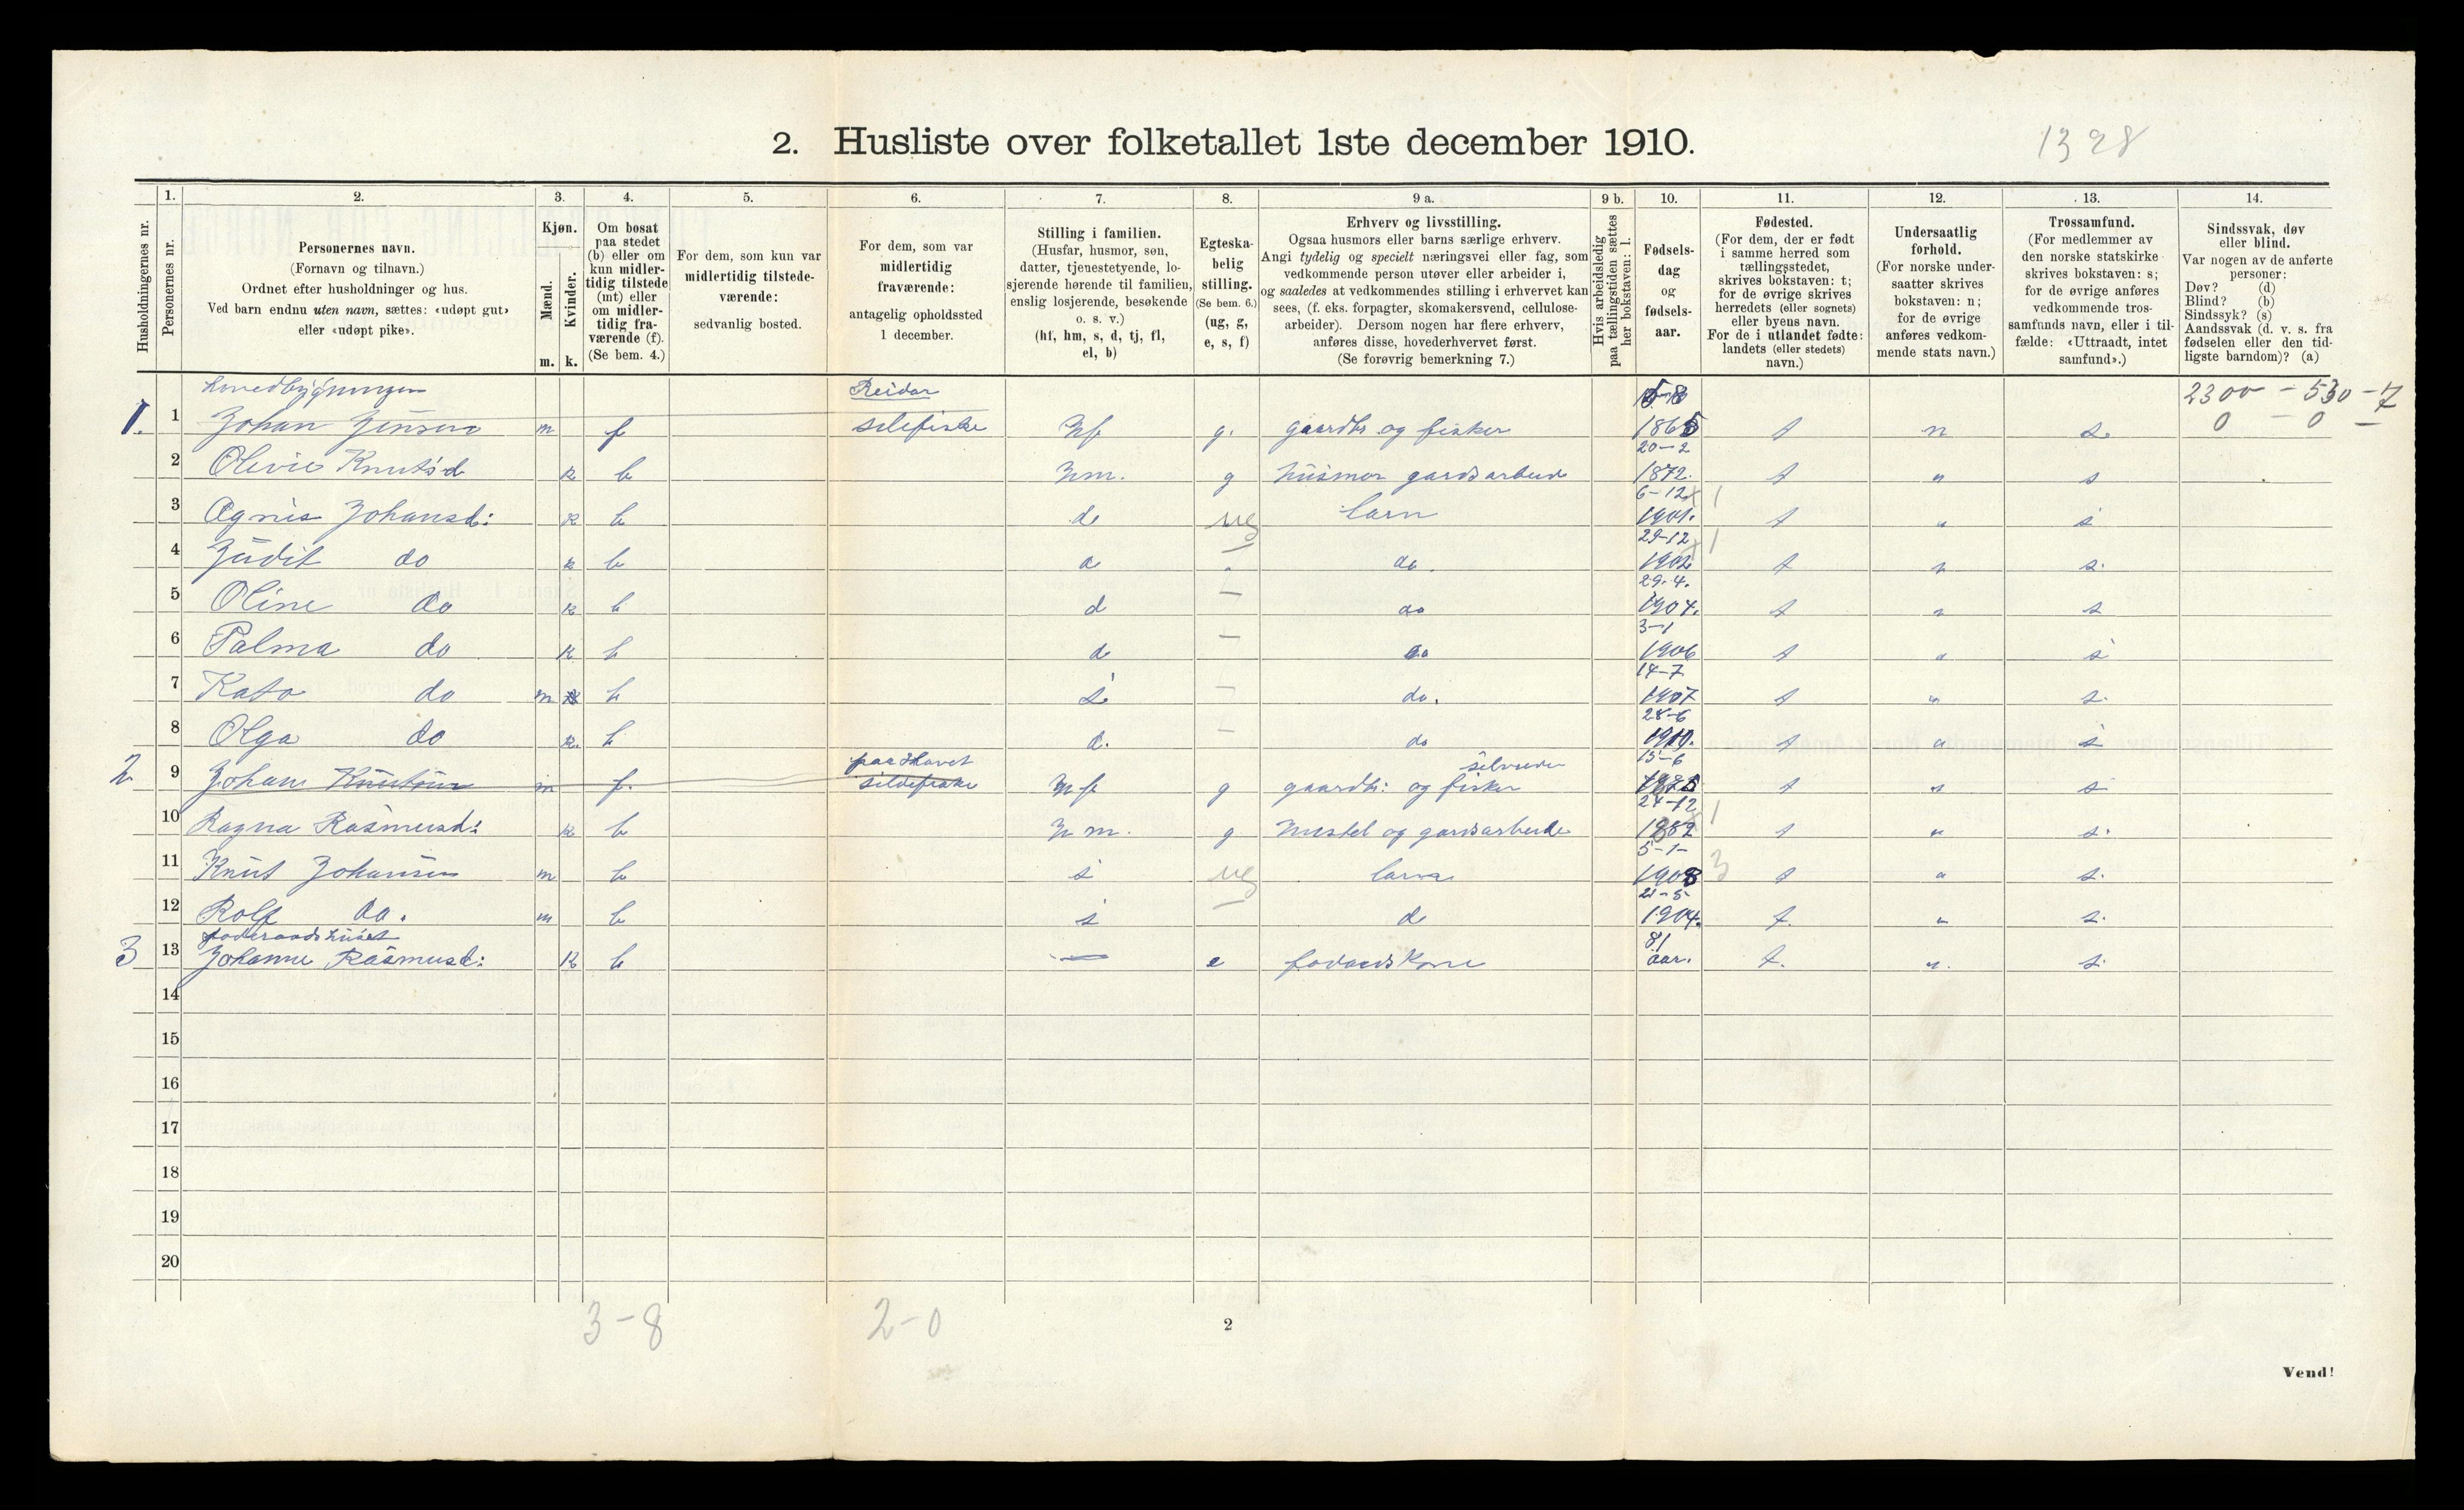 2. Husliste over folketallet 1ste december 1910.
1328
Husholdningernes nr.
1.
Personernes nr.
2.
Personernes navn.
(Fornavn og tilnavn.)
Ordnet efter husholdninger og hus.
Ved barn endnu uten navn, sættes: «udøpt gut»
eller «udøpt pike».
3.
Kjøn.
Mænd.
Kvinder.
m. k.
4.
Om bosat
paa stedet
(b) eller om
kun midler-
tidig tilstede
(mt) eller
om midler-
tidig fra-
værende (f).
(Se bem. 4.)
5.
For dem, som kun var
midlertidig tilstede-
værende:
sedvanlig bosted.
6.
For dem, som var
midlertidig
fraværende:
antagelig opholdssted
1 december.
7.
Stilling i familien.
(Husfar, husmor, søn,
datter, tjenestetyende, lo-
sjerende hørende til familien,
enslig losjerende, besøkende
o. s. v.)
(hf, hm, s, d, tj, fl,
el, b)
8.
Egteska-
belig
stilling.
(Se bem. 6.)
(ug, g,
e, s, f)
9 a.
Erhverv og livsstilling.
Ogsaa husmors eller barns særlige erhverv.
Angi tydelig og specielt næringsvei eller fag, som
vedkommende person utøver eller arbeider i,
og saaledes at vedkommendes stilling i erhvervet kan
sees, (f. eks. forpagter, skomakersvend, cellulose-
arbeider). Dersom nogen har flere erhverv,
anføres disse, hovederhvervet først.
(Se forøvrig bemerkning 7.)
9 b.
Hvis arbeidsledig
paa tællingstiden sættes
her bokstaven: l.
10.
Fødsels-
dag
og
fødsels-
aar.
11.
Fødested.
(For dem, der er født
i samme herred som
tællingsstedet,
skrives bokstaven: t;
for de øvrige skrives
herredets (eller sognets)
eller byens navn.
For de i utlandet fødte:
landets (eller stedets)
navn.)
12.
Undersaatlig
forhold.
(For norske under-
saatter skrives
bokstaven: n;
for de øvrige
anføres vedkom-
mende stats navn.)
13.
Trossamfund.
(For medlemmer av
den norske statskirke
skrives bokstaven: s;
for de øvrige anføres
vedkommende tros-
samfunds navn, eller i til-
fælde: «Uttraadt, intet
samfund».)
14.
Sindssvak, døv
eller blind.
Var nogen av de anførte
personer:
Døv? (d)
Blind? (b)
Sindssyk? (s)
Aandssvak (d. v. s. fra
fødselen eller den tid-
ligste barndom)? (a)
hovedbygningen Reidar 2300 - 530 - 7
1. 1 Johan Jensen m f sildefiske hf g. gaardbr og fisker 1865 t n s. 0 - 0 -
20-2
2 Olivie Knutsd k b hm. g husmor gardsarbeide 1872. t " s
6-12 1
3 Agnes Johansd: k b d ug barn 1901. t " s
29-12 1
4 Judit do k b d " do. 1902 t " s.
29-4.
5 Oline do k b d — do 1904. t " s
3-1
6 Palma do k b d — do 1906 t " s
14-7
7 Kato do m b s — do. 1907 t " s.
28-6
8 Olga do k. b d. — do 1910. t " s
paa Havet selveier 15-6
2 9 Johan Knutsen m f. sildefiske hf g gaardbr: og fisker t " s
24-12 1
10 Ragna Rasmusd: k b hm. g husstel og gardsarbeide 1882 t " s.
5-1-
11 Knut Johansen m b s ug barn 1908 3 t " s.
2-5
12 Rolf do. m b s — do 1904. t. " s.
foderaadshuset 81
3 13 Johanne Rasmusd: k b — e foderaadskone aar. t. ". s.
14
15
16
17
18
19
20
3-8 2-0
2
Vend!